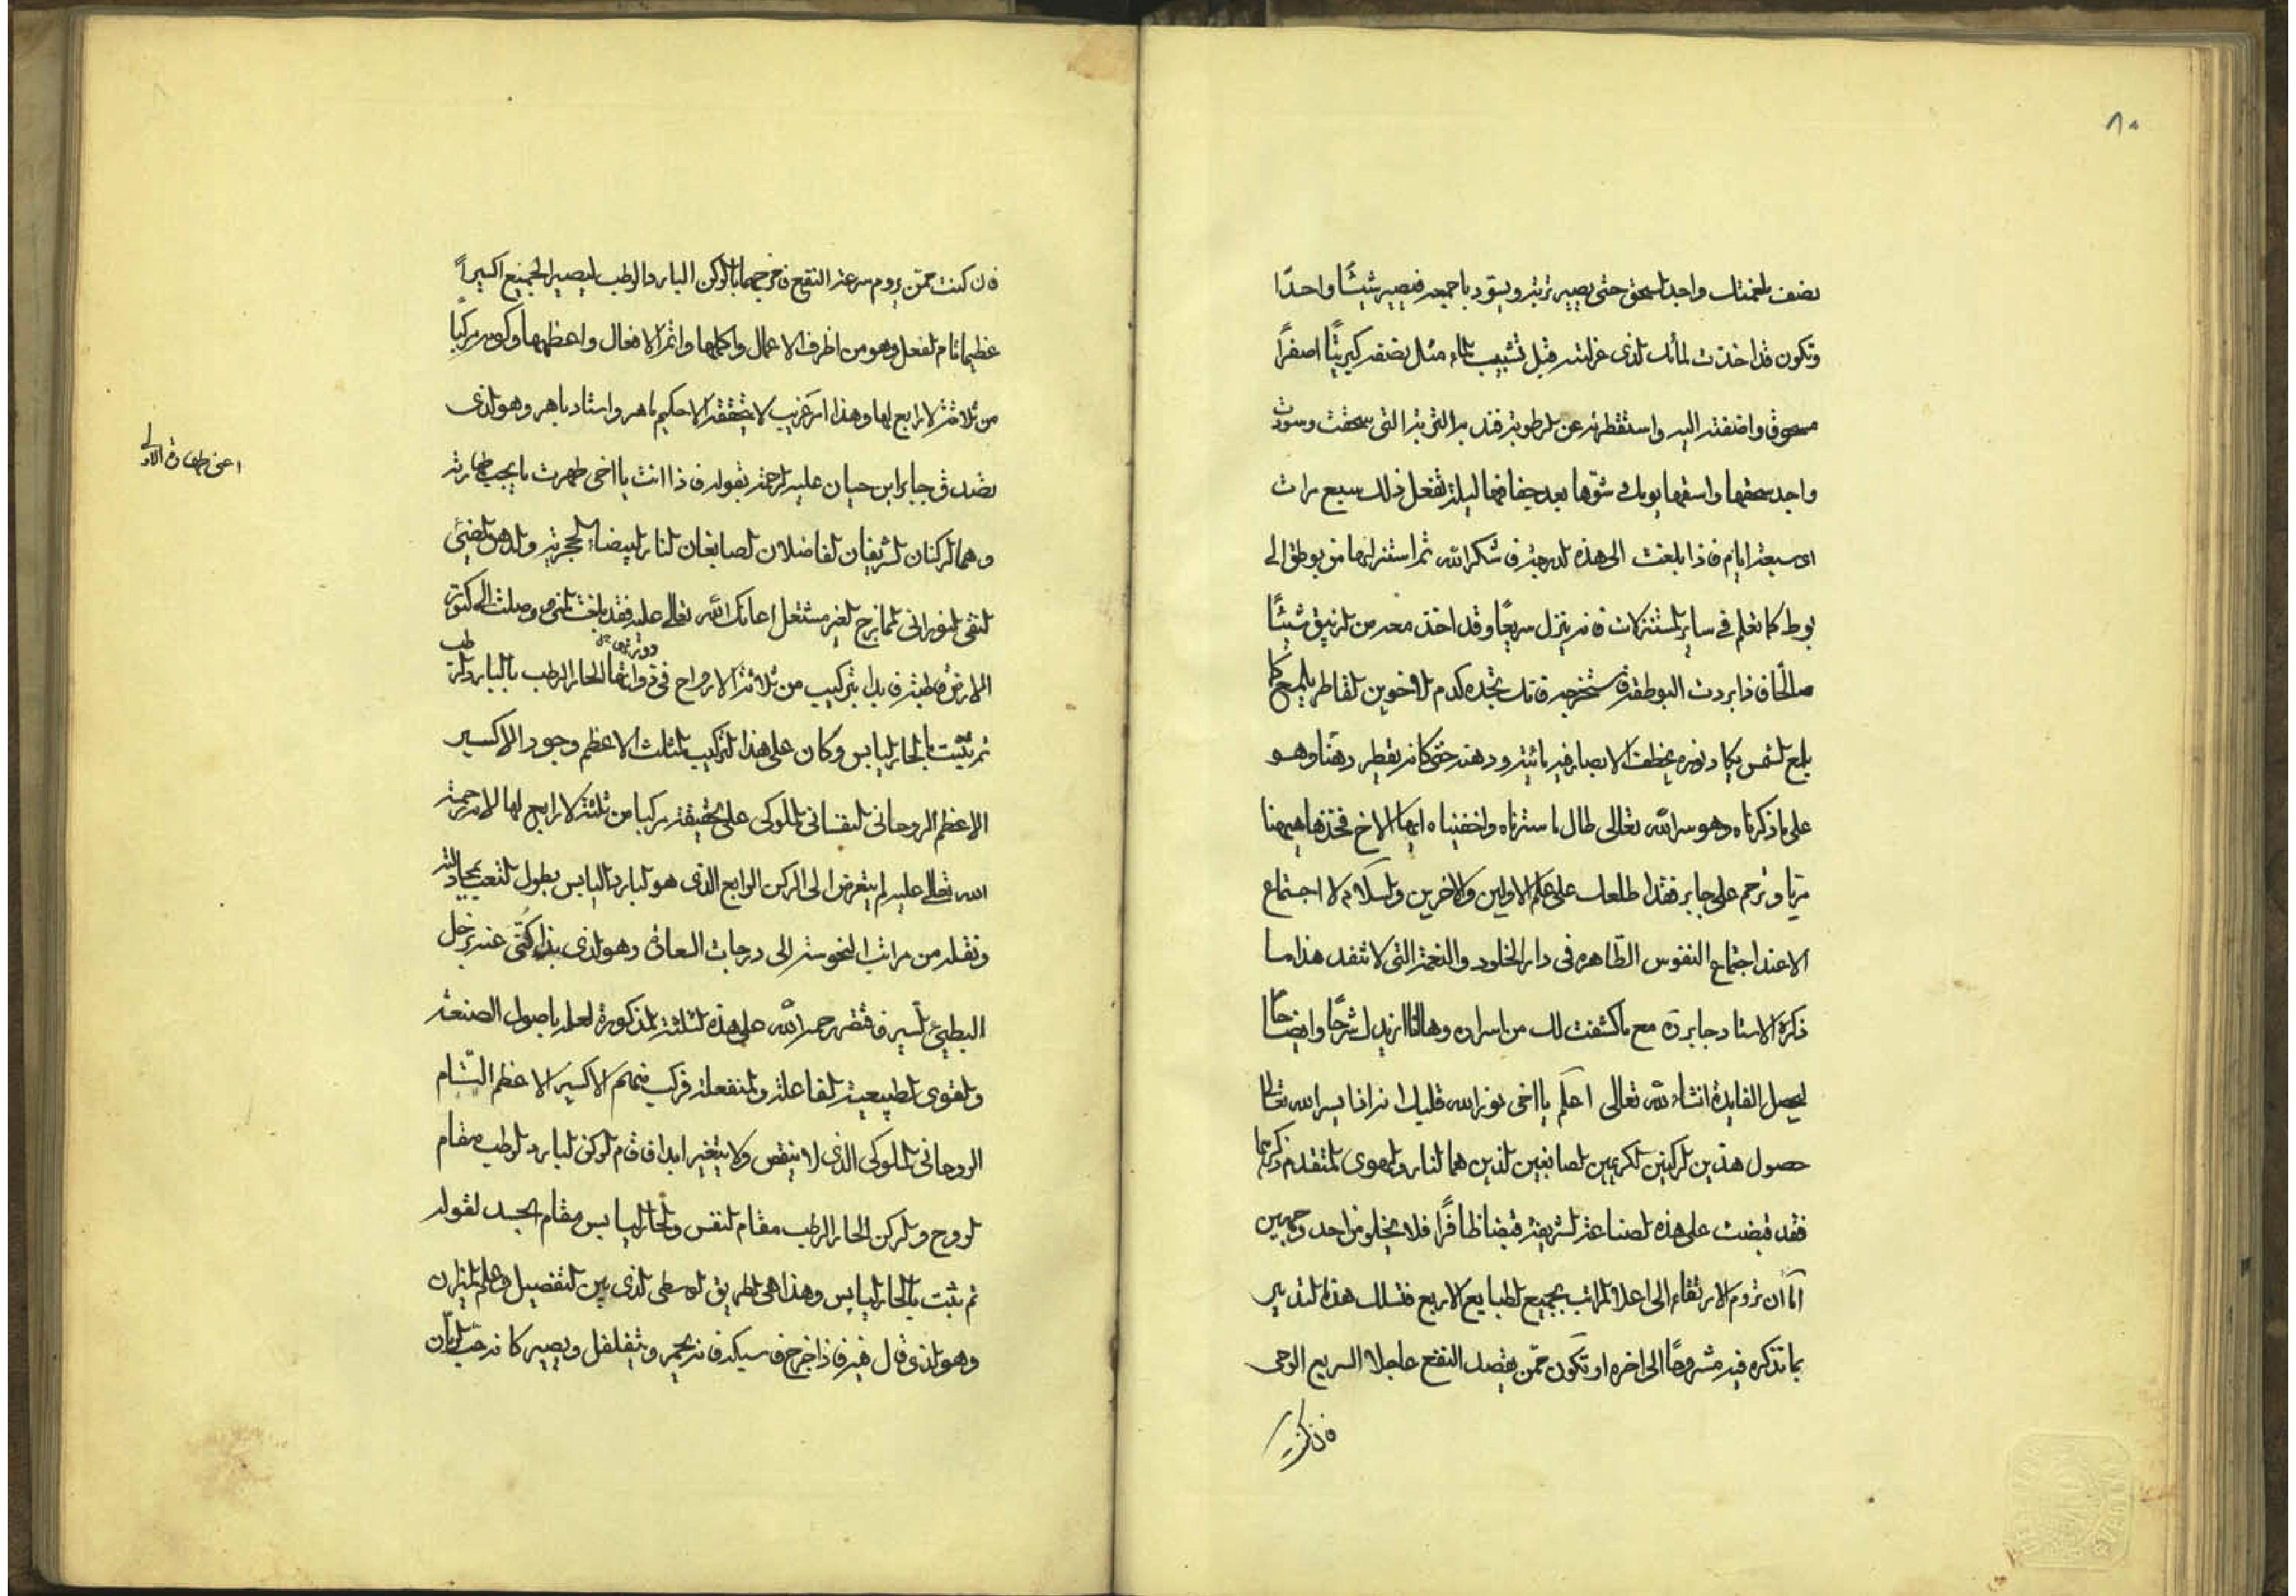 ٨٠
نصف بلغمتك واجد السحق حتى يصير تربته ويسود باجمعه فيصير شيئًا واحدًا
وتكون قد اخذت المأك الذى عزلته قبل تشبيب الماء مثل نصفه كبريتًا اصفرًا
مسحوق واضفته اليه واستقطرته عن الرطوبة فند به التربة التى سحقت وسودت
واجد سحقها واسقها يومك وشوّها بعد جفافها ليلة تفعل ذلك سبع مرات
او سبعة ايام فاذا بلغت الى هذه الدرجة فاشكر الله ثم استنزلها من بوطق الى
بوط كما تعلم فى ساير المستنزلات فانه ينزل سريعًا وقد اخذت معه من الزنيق شيئًا
صالحًا فاذا بردت البوطقة فاستخرجه فانك تجده كدم الاخوين القاطر يلمع كما
يلمع الشمس يكاد نوره يخطف الابصار فيه مائية ودهنة حتى كانه يقطر دهنًا وهو
على ما ذكرناه وهو سر الله تعالى طال ما سترناه واخفيناه ايها الاخ فخذها هيهنا
مريا وترحم على جابر فقد اطلعك على علم الاولين والاخرين والسلام لا اجتماع
الا عند اجتماع النفوس الطاهره فى دار الخلود والنعمة التى لا تنفد هذا ما
ذكره الاستاد جابر ره مع ما كشفت لك من اسراره وها انا ازيدك شرحًا وايضاحًا
ليحصل الفايدة انشاء الله تعالى اعلم يا اخى نور الله قلبك انه اذا يسر الله تعالى
حصول هذين الركنين الكريمين الصابغين الذين هما النار والهوى المتقدم ذكرهما
فقد قبضت على هذه الصناعة الشريفة قبضا ظافرًا فلا يخلو من احد وجهين
اما ان تروم الارتقاء الى اعلا المراتب بجميع الطبايع الاربع فتسلك هذا التدبير
بما تذكره فيه مشروحًا الى اخره او تكون ممن يقصد النفع عاجلا السريع الوحى
فان كنت
فان كنت ممّن يروم سرعة النفع فامزجهما بالركن البارد الرطب ليصير الجميع اكسيراً
عظيما تام الفعل وهو من اظرف الاعمال واكملها واتم الافعال واعظمها وكونه مركبًا
من ثلاثة لا رابع لها وهذا امر غريب لا يتحققه الا حكيم ماهر واستاد باهر وهو الذى
يصدق جابر ابن حيان عليه الرحمة بقوله فاذا انت يا اخى طهرت ما يجب طهارته
اعنى طهارة الاولى
وهما الركنان الشريفان الفاضلان الصابغان النار البيضاء الحجرية والدهن المضيئ
النقى النورانى الممازج الغير مشتعل اعانك الله تعالى عليه فقد بلغت المنى ووصلت الى كنوز
الارض قاطبة فابدا بتركيب من ثلاثة الارواح فى ذواتها الحار الرطب بالبارد الرطب
ثم يثبت بالحار اليابس وكان على هذا التركيب المثلث الاعظم وجود الاكسير
الاعظم الروحانى النفسانى الملوكى على الحقيقة مركبا من ثلثة لا رابع لها لانه رحمة
الله تعالى عليه لم يتعرض الى الركن الرابع الذى هو البارد اليابس بطول التعب بجهادته
ونقله من مراتب النحوسة الى درجات السعادة وهو الذى بذا كُنّى عنه بزحل
البطيئ السير فاقتصر رحمه الله على هذه الثلثة المذكورة لعلمه باصول الصنعة
والقوى الطبيعية الفاعلة والمنفعلة فركب منهم الاكسير الاعظم التام
الروحانى الملوكى الذى لا ينقص ولا يتغير ابدا فاقام الركن البارد الرطب مقام
الروح والركن الحار الرطب مقام النفس والحار اليابس مقام الجسد لقوله
ثم يثبت بالحار اليابس وهذا هى الطريق الوسطى الذى بين التفصيل وعلم الميزان
وهو الذى قال فيه فاذا خرج فاسيكه فانه يحمر ويتفلفل ويصير كانه حب الرمان